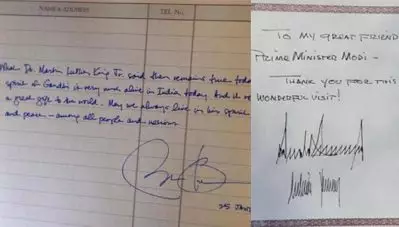 NAME & ADDRESS
TEL. NO.
What Dr. Martin Luther King Jr. said then remains true today
spirit of Gandhi is very much alive in India today. And it re
a great gift to the world. May we always live in his spirit
and peace - among all people and nations.
25
TO MY GREAT FRIEND
PRIME MINISTER MODI -
THANK YOU FOR THIS
WONDERFUL VISIT!